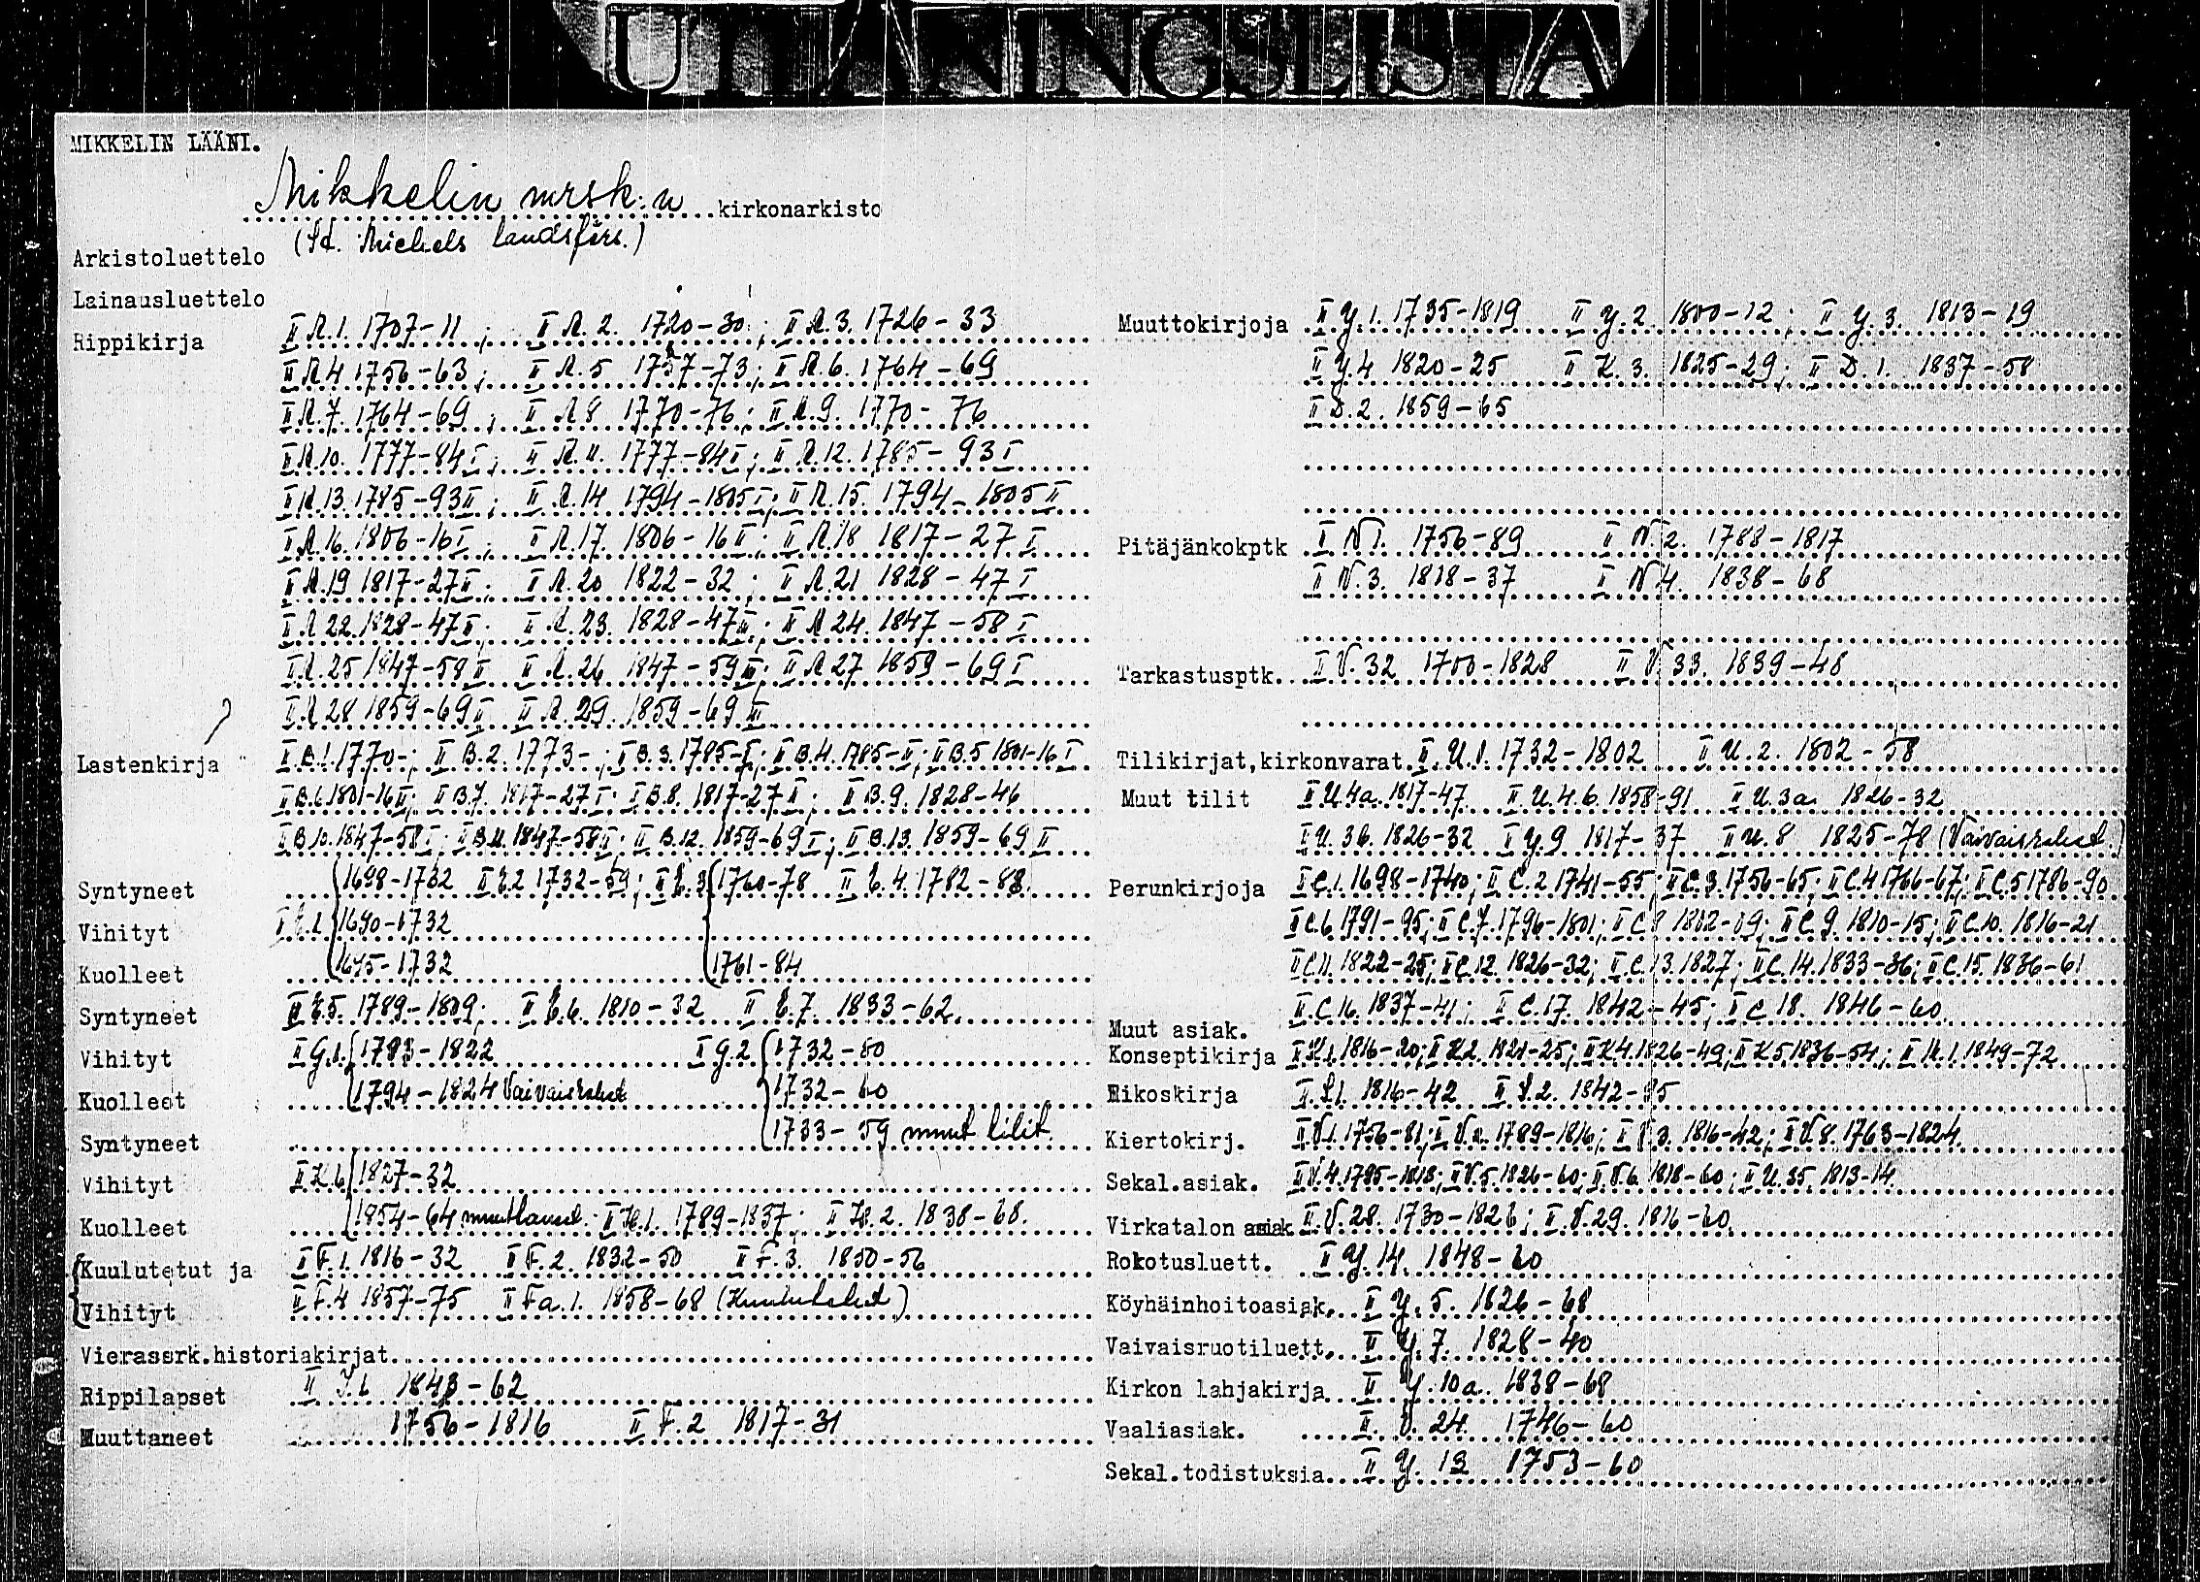 UTTÄNINGSLISTA
MIKKELIN LÄÄNI.
Mikkelin mrsk:n kirkonarkisto
(St. Michels landsförs.)
Arkistoluettelo
Lainausluettelo
Rippikirja II A.1. 1707-11; II A.2. 1720-30; II A.3. 1726-33
II A.4 1756-63; II A.5 1757-73; II A.6. 1764-69
II A.7. 1764-69; II A 8 1770-76; II A.9. 1770-76
II A.10. 1777-84 I; II A.11. 1777-84 I; II A.12. 1785-93 I
II A.13. 1785-93 II; II A.14 1794-1805 I; II A.15. 1794-1805 II
II A.16. 1806-16 I; II A.17. 1806-16 II; II A.18 1817-27 I
II A.19 1817-27 II; II A.20 1822-32; II A.21 1828-47 I
II A 22. 1828-47 II; II A.23. 1828-47 III; II A 24. 1847-58 I
II A.25 1847-59 II II A.26 1847-59 III; II A 27 1859-69 I
II A 28 1859-69 II II A.29. 1859-69 III
Lastenkirja II B.1. 1770-; II B.2. 1773-; II B.3. 1785-I; II B.4. 1785-II; II B.5 1801-16 I
II B.6. 1801-16 II; II B.7. 1817-27 I; II B.8. 1817-27 II; II B.9. 1828-46
II B 10. 1847-58 I; II B.11. 1847-58 II; II B.12. 1859-69 I; II B.13. 1859-69 II
Syntyneet 1698-1732 II E.2 1732-59; II E.3 1760-78 II E.4. 1782-88.
Vihityt II E.1. 1690-1732
Kuolleet 1695-1732 1761-84
Syntyneet II E.5. 1789-1809; II E.6. 1810-32 II E.7. 1833-62.
Vihityt II G.1. 1793-1822 II G.2. 1732-80
Kuolleet 1794-1824 Vaivaisrahat 1732-60
Syntyneet 1733-59 muut tilit.
Vihityt II K.6 1827-32
Kuolleet 1854-64 muuttaneet. II H.1. 1789-1837; II H.2. 1838-68.
Kuulutetut ja II F.1. 1816-32 II F.2. 1832-50 II F.3. 1850-56
Vihityt II F.4 1857-75 II Fa.1. 1858-68 (Kuulutukset)
Vierassrk.historiakirjat
Rippilapset II J.1. 1843-62
Muuttaneet 1756-1816 II F.2 1817-31
Muuttokirjoja II Y.1. 1735-1819 II Y.2. 1800-12; II Y.3. 1813-19
II Y.4 1820-25 II K.3. 1825-29; II D.1. 1837-58
II D.2. 1859-65
Pitäjänkokptk II N 1. 1756-89 II N.2. 1788-1817
II N.3. 1818-37 II N 4. 1838-68
Tarkastusptk. II V.32 1700-1828 II V.33. 1839-48
Tilikirjat,kirkonvarat II U.1. 1732-1802 II U.2. 1802-58
Muut tilit II U.4a. 1817-47 II U.4.b. 1858-91 II U.3a. 1826-32
II U.3b. 1826-32 II Y.9 1817-37 II U.8 1825-78 (Vaivaisrahat)
Perunkirjoja II C.1. 1698-1740; II C.2 1741-55; II C.3. 1756-65; II C.4 1766-67; II C.5 1786-90
II C.6 1791-95; II C.7. 1796-1801; II C 8 1802-09; II C.9. 1810-15; II C.10. 1816-21
II C.11. 1822-25; II C.12. 1826-32; II C.13. 1827; II C.14. 1833-36; II C.15. 1836-61
II C.16. 1837-41; II C.17. 1842-45; II C 18. 1846-60.
Muut asiak.
Konseptikirja II K.1. 1816-20; II K.2. 1821-25; II K 4. 1826-49; II K 5 1836-54; II K.1. 1849-72
Rikoskirja II L.1. 1816-42 II L.2. 1842-95
Kiertokirj. II V.1. 1756-81; II V.2. 1789-1816; II V.3. 1816-42; II V.8. 1763-1824.
Sekal.asiak. II V.4. 1795-1818; II V.5. 1826-60; II V.6. 1818-60; II U.35. 1813-14.
Virkatalon asiak. II V.28. 1730-1826; II V.29. 1816-60.
Rokotusluett. II Y.14. 1848-60
Köyhäinhoitoasiak. II Y.5. 1826-68
Vaivaisruotiluett. II Y.7. 1828-40
Kirkon lahjakirja II Y.10a. 1838-68
Vaaliasiak. II V.24. 1746-60
Sekal.todistuksia II Y.13 1753-60